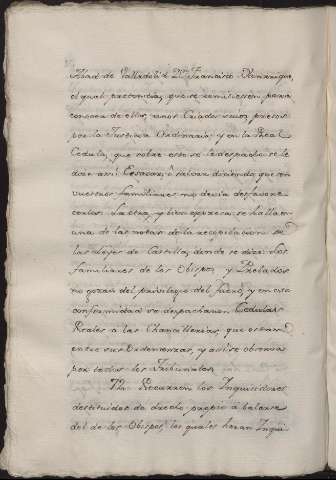 Abad de Valladolid Dn. Francisco
el qual pretendia, que se remitiesen para
conocer de ellos, unos Criados suyos, presos
por la Justicia Ordinaria, y en la Real
Cedula, que sobre esto se le despachó se le
dice así:
vuestros familiares no devia desfavore
cerlos. La otra, y bien expresa se halla en
una de las notas de la recopilacion de
las Leyes de Castilla, donde se dice: Los
familiares de los Obispos, y Prelados
no gozan del privilegio del fuero, y en esta
conformidad se despacharon Cedulas
Reales a las Chancillerias, que estan
entre sus Ordenanzas, y así se observa
por todos los Tribunales.
72. Recurren los Inquisidores
destituidos de derecho propio a valerse
del de los Obispos, los quales heran Inqui